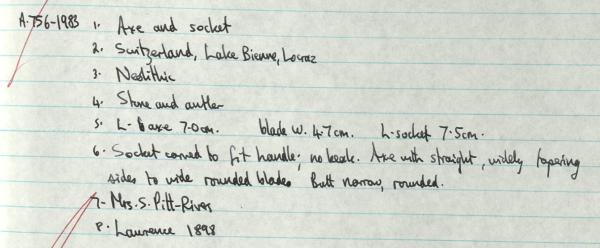 A.756-1983 1. Axe and socket
2. Switzerland, Lake Bienne, Locraz
3. Neolithic
4. Stone and antler
5. L- axe 7.0cm. blade w. 4.7cm. L-socket 7.5cm.
6. Socket carved to fit handle; no beak. Axe with straight, widely tapering
sides to wide rounded blade. Butt narrow, rounded.
7. Mrs. S. Pitt-Rivers
8. Lawrence 1898